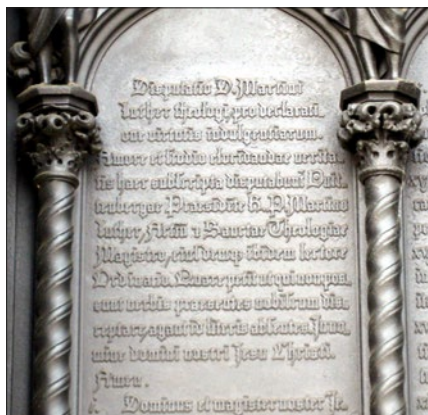 Disputatio D. Martini
Luther theologi, pro declarati
one virtutis indulgentiarum.
Amore et studio elucidandae verita-
tis haec subscripta disputabunt Wit-
tenbergae Praesidente R. P. Martino
Luther, Artium et Sanctae Theologiae
Magistro, eiusdemque ibidem lectore
Ordinario. Quare petit ut qui non pos-
sunt verbis praesentes nobiscum dis-
ceptare, agant id literis absentes. In no-
mine domini nostri Jesu Christi.
Amen.
i. Dominus et magister noster Je-